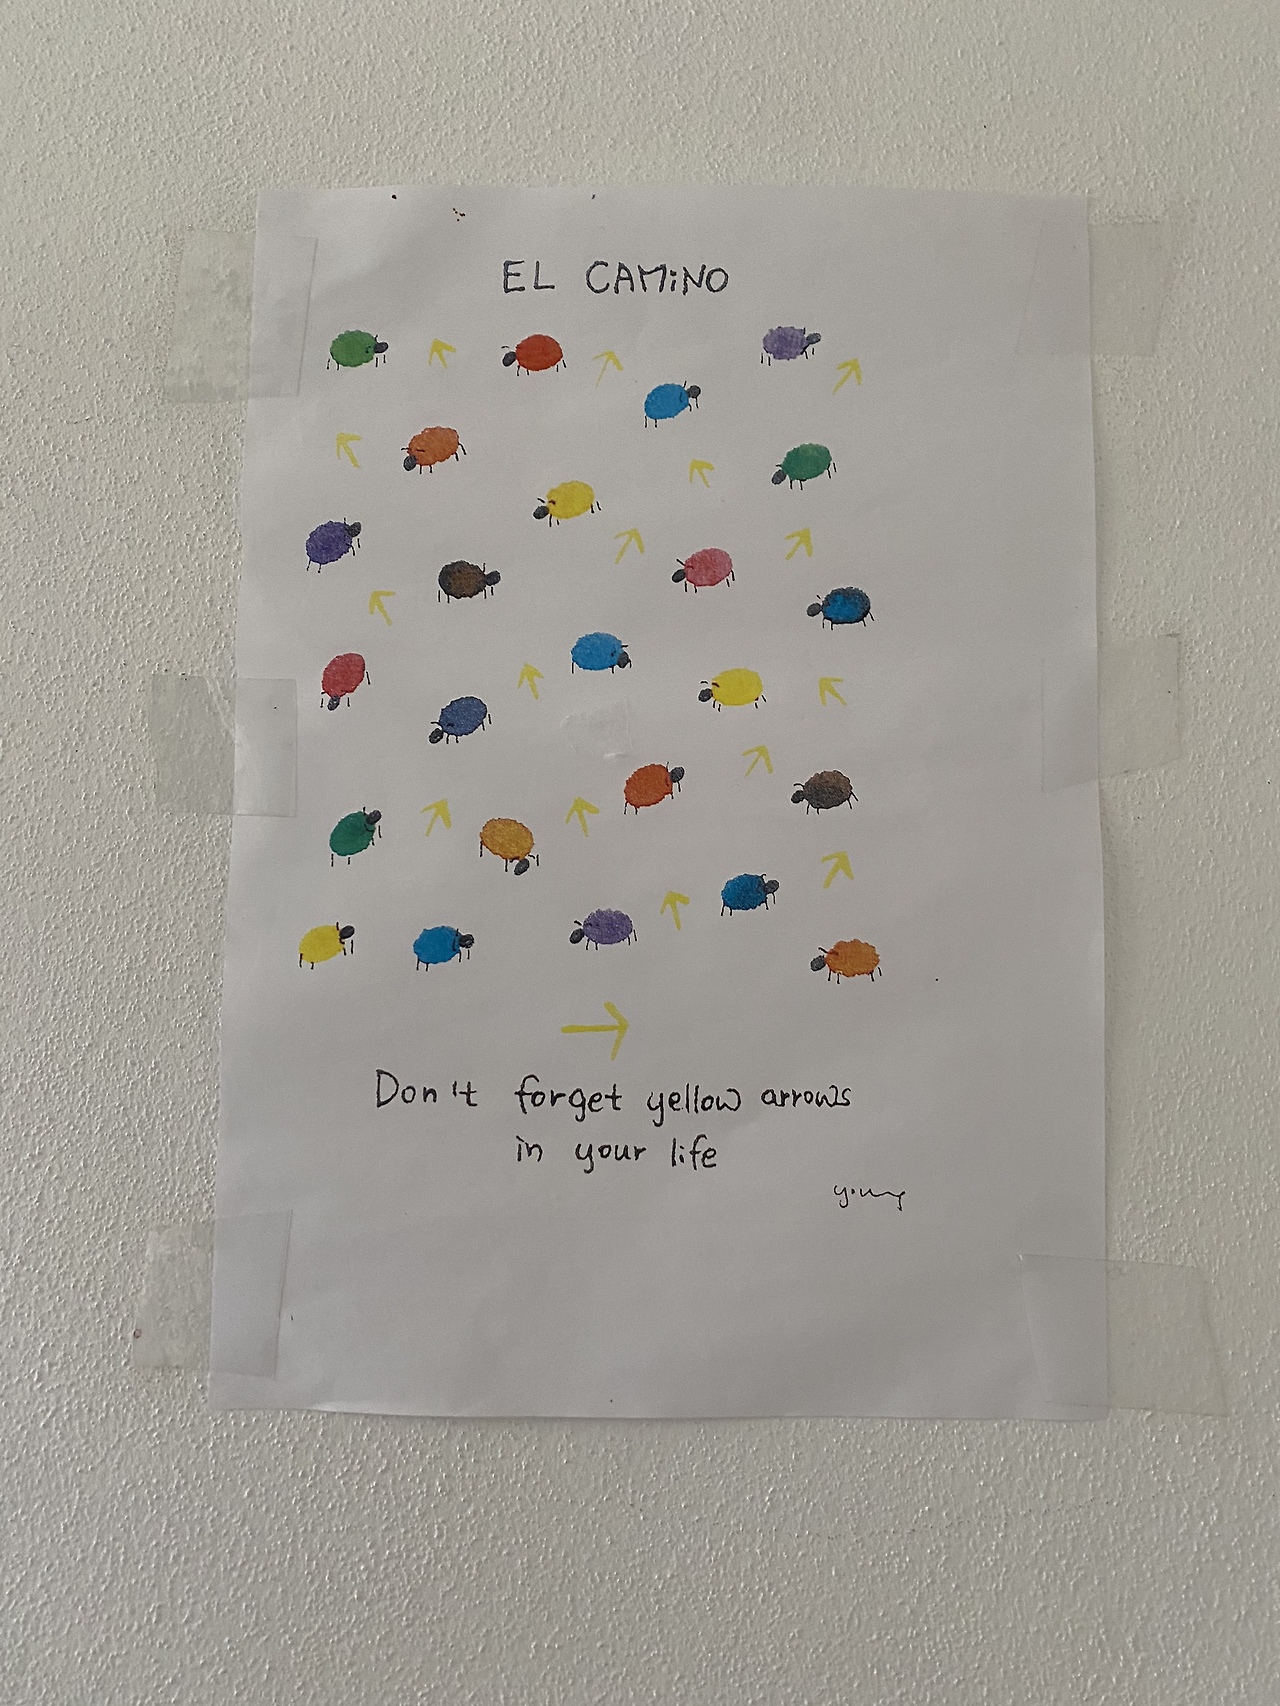 EL CAMiNO
Don't forget yellow arrows
in your life
young